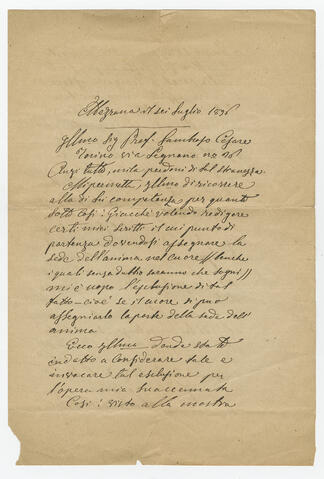 Mezzana il sei Luglio 1896
Illmo Sig Prof. Lombroso Cesare
Torino via Legnano no 26
Anzi tutto, mi la perdoni di tal
Mi permetta, Illmo di ricorrere
alla di lui competenza per quanto
sotto Così! Giacchè volendo redigere
certi miei scritti il cui punto di
partenza dovendosi assegnare la
sede dell'anima nel cuore
i quali senza dubbio saranno che sogni
mi è uopo l'esclusione di tal
fatto - cioè se il cuore si può
assegniarlo la parte della sede dell'
anima
Ecco Illmo donde sta
indotto a considerare tale e
invocare tal esclusione per
l'opera mia suaccennata
Così! visto alla mostra